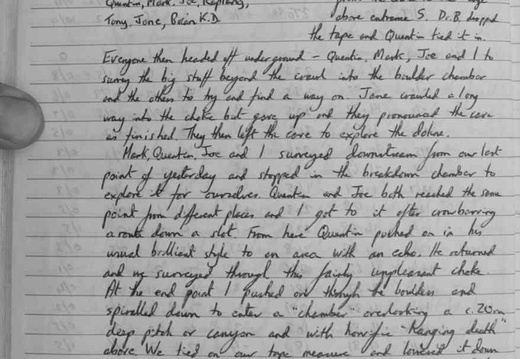 Quentin, Mark, Joe,
Tony, Jane, Brian K.D.
above entrance S. Dr. B dropped
the tape and Quentin tied it in.
Everyone then headed off underground - Quentin, Mark, Joe and I to
survey the big stuff beyond the crawl into the boulder chamber
and the others to try and find a way on. Jane crawled a long
way into the choke but gave up and they pronounced the cave
as finished. They then left the cave to explore the doline.
Mark, Quentin, Joe and I surveyed downstream from our last
point of yesterday and stopped in the breakdown chamber to
explore it for ourselves. Quentin and Joe both reached the same
point from different places and I got to it after crowbarring
a route down a slot. From here Quentin pushed on in his
usual brilliant style to an area with an echo. He returned
and we surveyed through this fairly unpleasant choke.
At the end point I pushed on through the boulders and
spiralled down to enter a "chamber" overlooking a c.20m
deep pitch or canyon and with horrific "Hanging death"
above. We tied on our tape measure and lowered it down